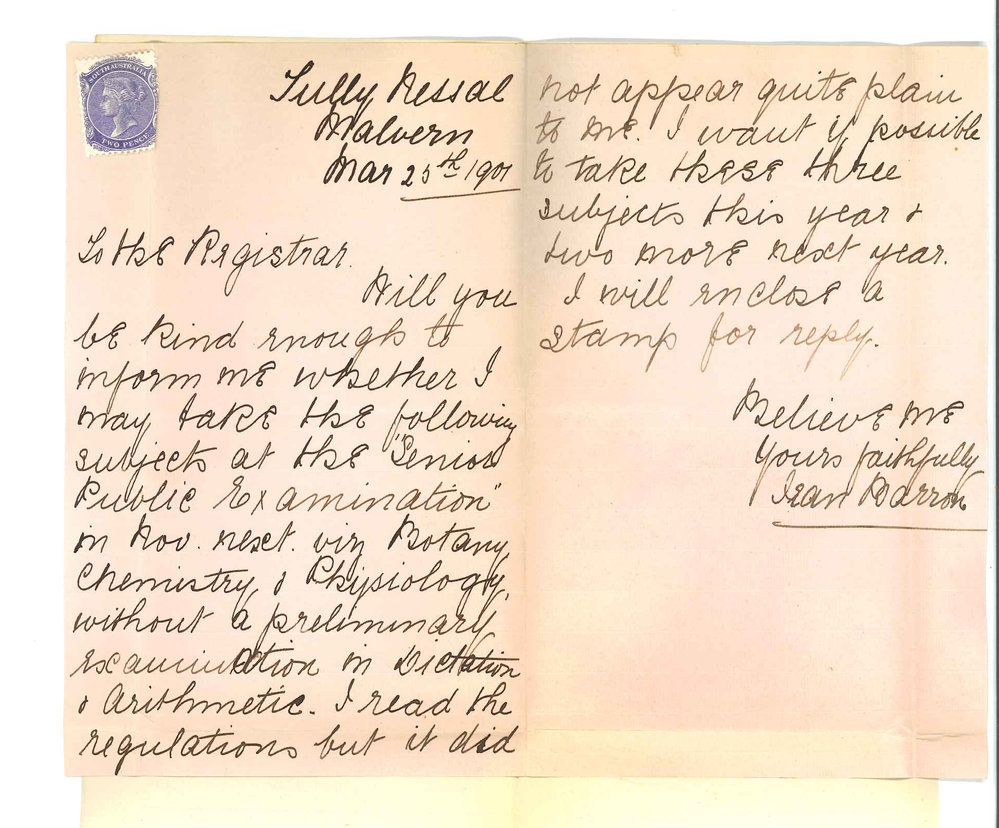 SOUTH AUSTRALIA
TWO PENCE
Tully Nessal
Malvern
Mar 25th 1901
To the Registrar.
Will you
be kind enough to
inform me whether I
may take the following
subjects at the "Senior
Public Examination"
in Nov. next. viz Botany,
Chemistry, & Physiology,
without a preliminary
examination in Dictation
& Arithmetic. I read the
regulations but it did
not appear quite plain
to me. I want if possible
to take these three
subjects this year &
two more next year.
I will enclose a
stamp for reply.
Believe me
Yours faithfully
Jean Barron